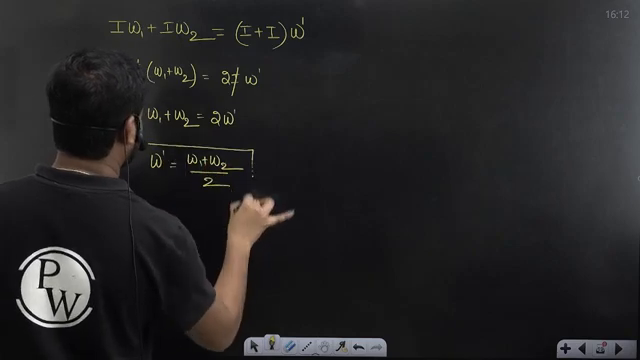 16:12
Iω₁ + Iω₂ = (I+I)ω'
(ω₁+ω₂) = 2I ω'
ω₁+ω₂ = 2ω'
ω' = ω₁+ω₂
2
PW